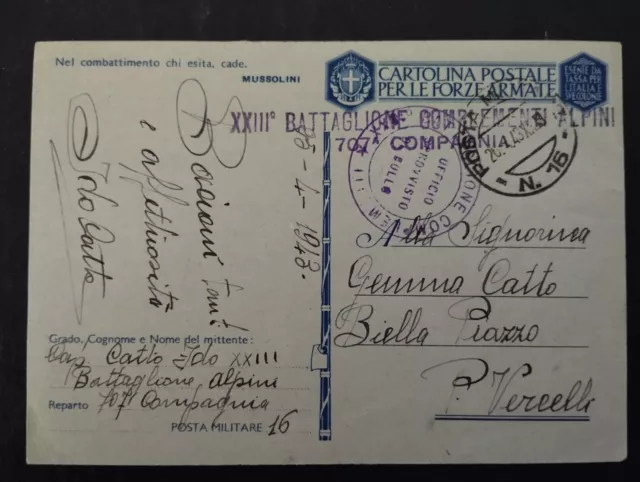 Nel combattimento chi esita, cade.
MUSSOLINI
CARTOLINA POSTALE
PER LE FORZE ARMATE
ESENTE DA
TASSA PER
L'ITALIA
E COLONIE
XXIII° BATTAGLIONE COMPLEMENTI ALPINI
707ª COMPAGNIA
UFFICIO
SPROVVISTO
BOLLO
POSTA MILITARE
N. 16
25-4-1943.
Bacioni tanti
e affettuosità
Ido Catto
Alla Signorina
Gemma Catto
Biella Piazzo
P. Vercelli
Grado, Cognome e Nome del mittente:
Catto Ido XXIII
Battaglione Alpini
Reparto 707ª Compagnia
POSTA MILITARE 16